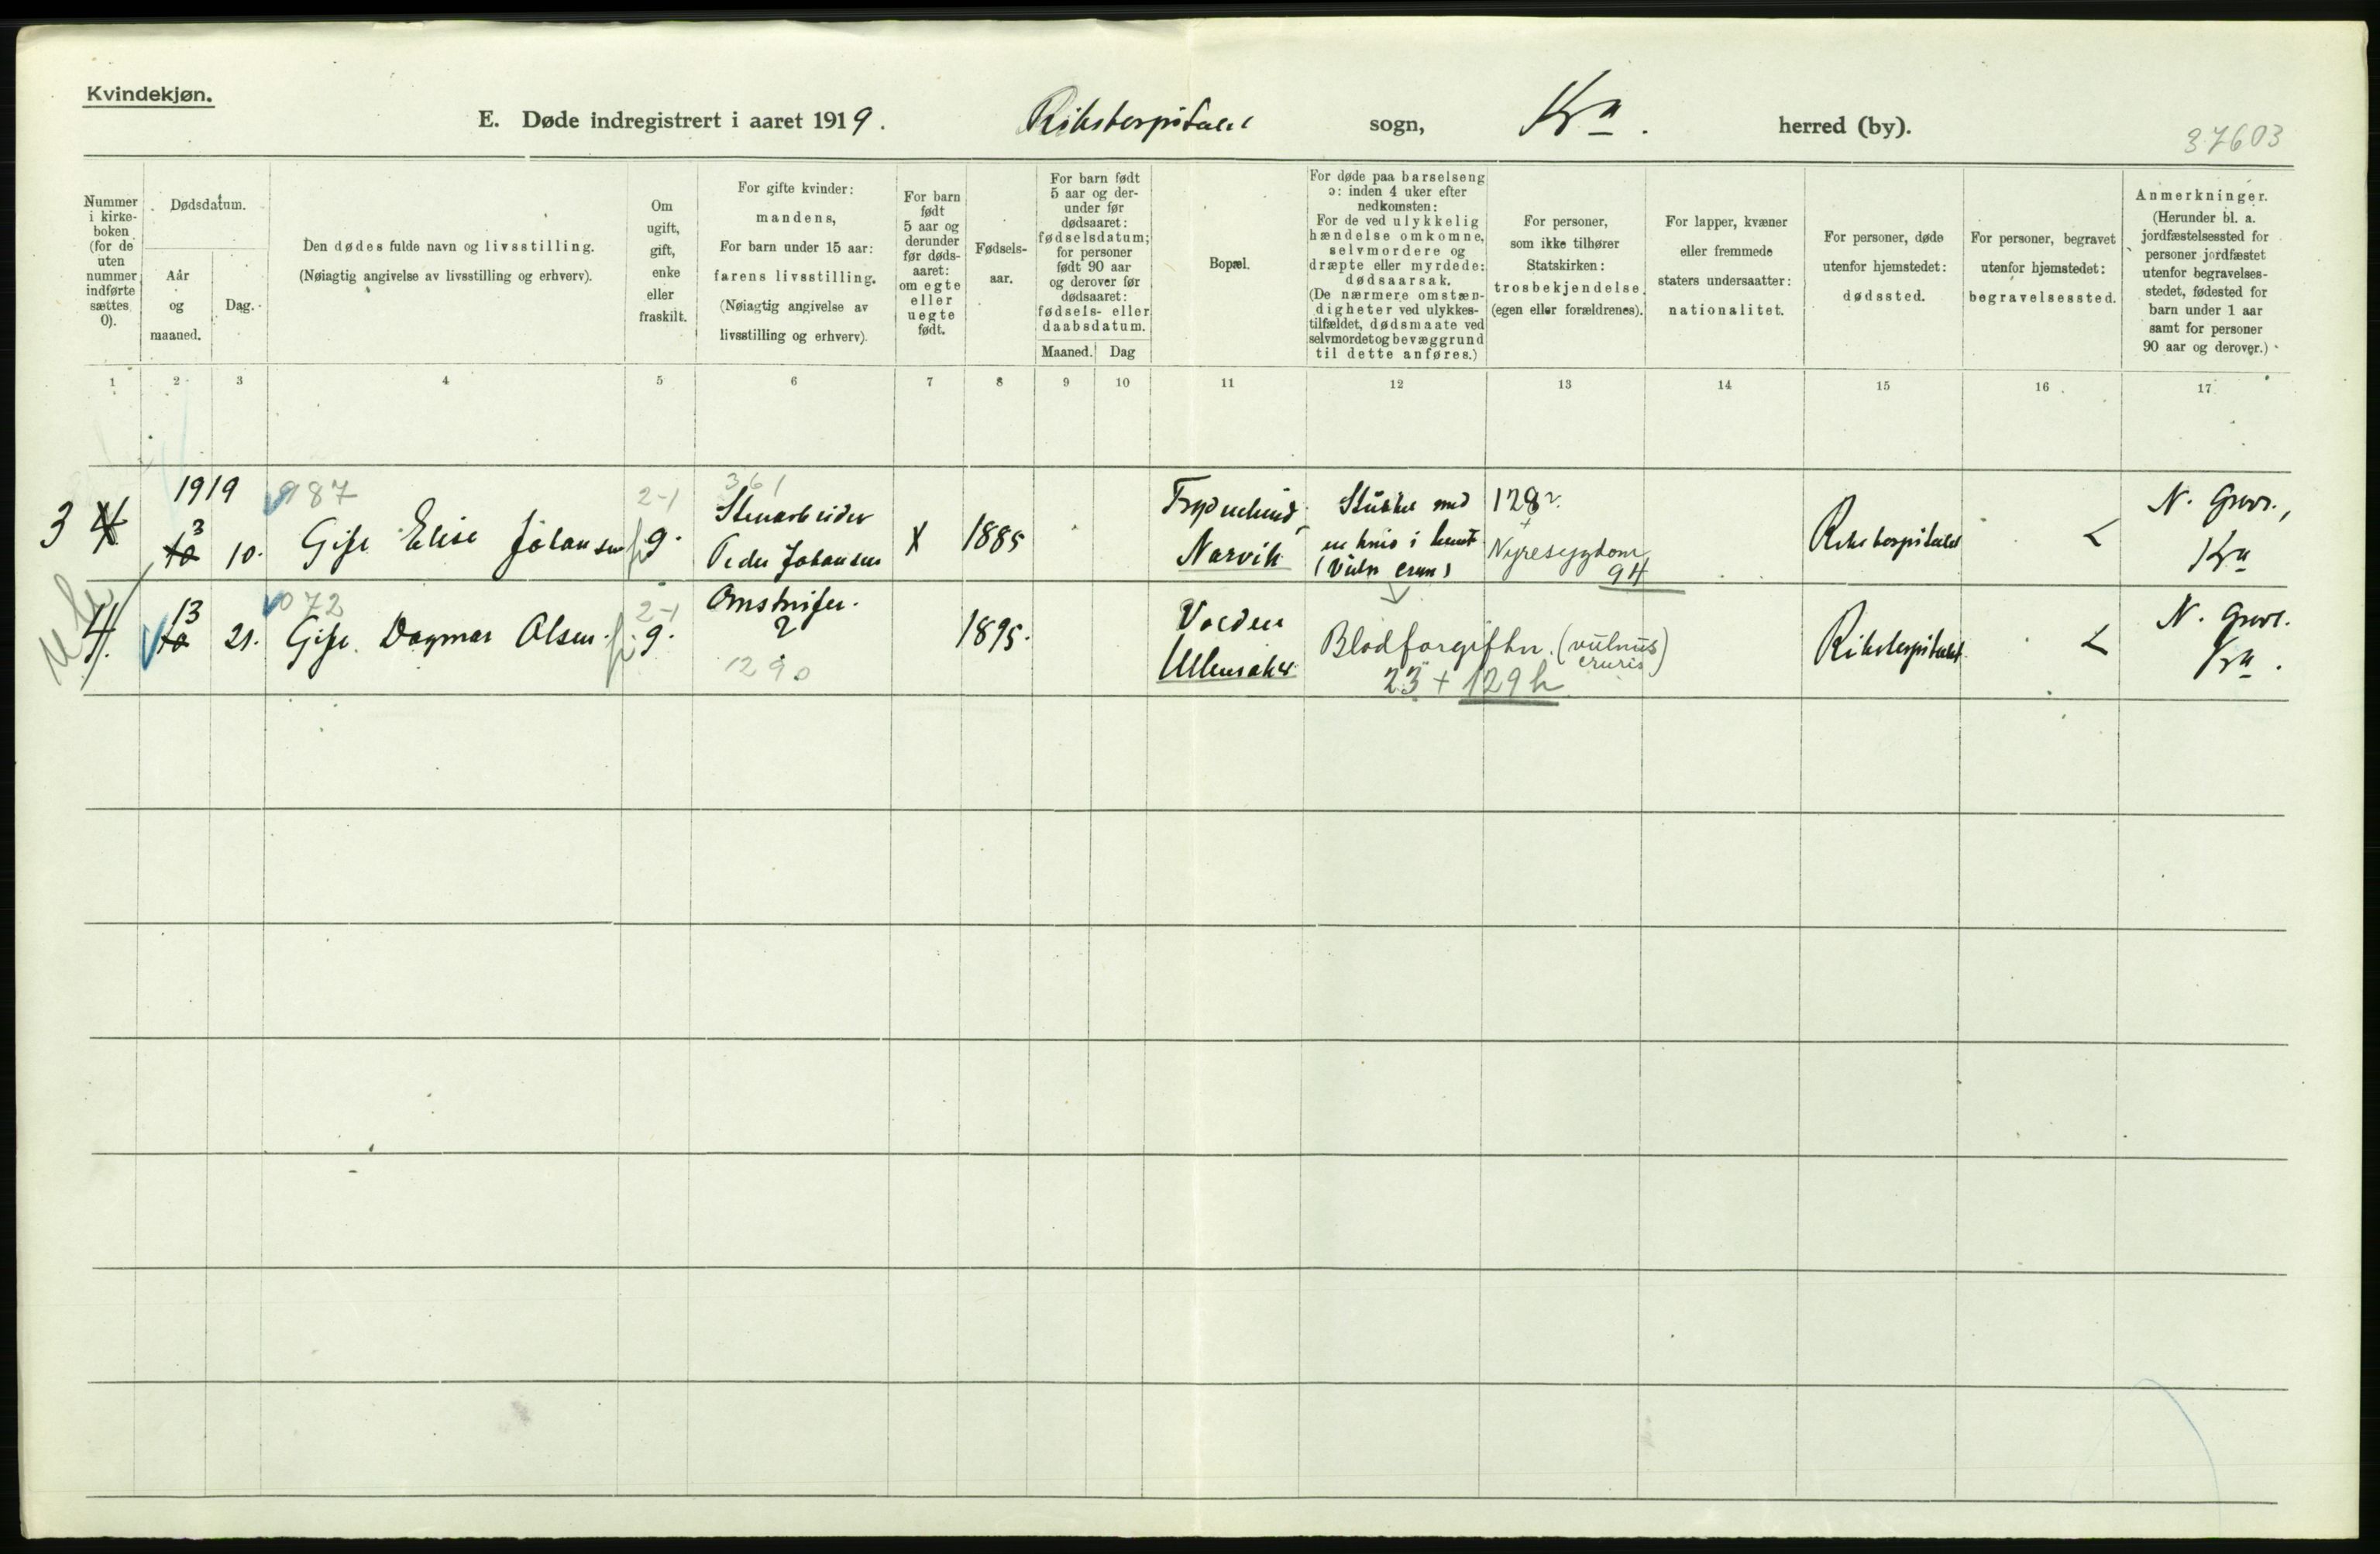 Kvindekjøn.
E. Døde indregistrert i aaret 1919. Rikshospitalet sogn, Kra. herred (by).
37603
Nummer
i kirke-
boken
(for de
uten
nummer
indførte
sættes
0).
Dødsdatum.
Aar
og
maaned.
Dag.
Den dødes fulde navn og livsstilling.
(Nøiagtig angivelse av livsstilling og erhverv).
Om
ugift,
gift,
enke
eller
fraskilt.
For gifte kvinder:
mandens,
For barn under 15 aar:
farens livsstilling.
(Nøiagtig angivelse av
livsstilling og erhverv).
For barn
født
5 aar og
derunder
før døds-
aaret:
om egte
eller
uegte
født.
Fødsels-
aar.
For barn født
5 aar og der-
under før
dødsaaret:
fødselsdatum;
for personer
født 90 aar
og derover før
dødsaaret:
fødsels- eller
daabsdatum.
Maaned. Dag
Bopæl.
For døde paa barselseng
ɔ: inden 4 uker efter
nedkomsten:
For de ved ulykkelig
hændelse omkomne,
selvmordere og
dræpte eller myrdede:
dødsaarsak.
(De nærmere omstæn-
digheter ved ulykkes-
tilfældet, dødsmaate ved
selvmordet og bevæggrund
til dette anføres.)
For personer,
som ikke tilhører
Statskirken:
trosbekjendelse.
(egen eller forældrenes).
For lapper, kvæner
eller fremmede
staters undersaatter:
nationalitet.
For personer, døde
utenfor hjemstedet:
dødssted.
For personer, begravet
utenfor hjemstedet:
begravelsessted.
Anmerkninger.
(Herunder bl. a.
jordfæstelsessted for
personer jordfæstet
utenfor begravelses-
stedet, fødested for
barn under 1 aar
samt for personer
90 aar og derover.)
1 2 3 4 5 6 7 8 9 10 11 12 13 14 15 16 17
3 4
1919
3
10 10.
987
Gift Elise Johansen
2-1
g.
361
Stenarbeider
Peder Johansen
X
1885
Narvik
Stukket med
en kniv i
(Vuln crur)
128
+
Nyresygdom
94
Rikshospitalet
N. Gravl.,
Kra
4.
13
10 21.
072
Gift. Dagmar Olsen.
2-1
g.
?
1290
1895.
Ullensaker
Blodforgiftn. (vulnus
cruris)
23 + 129 h
Rikshospitalet
N. Gravl.
Kra.